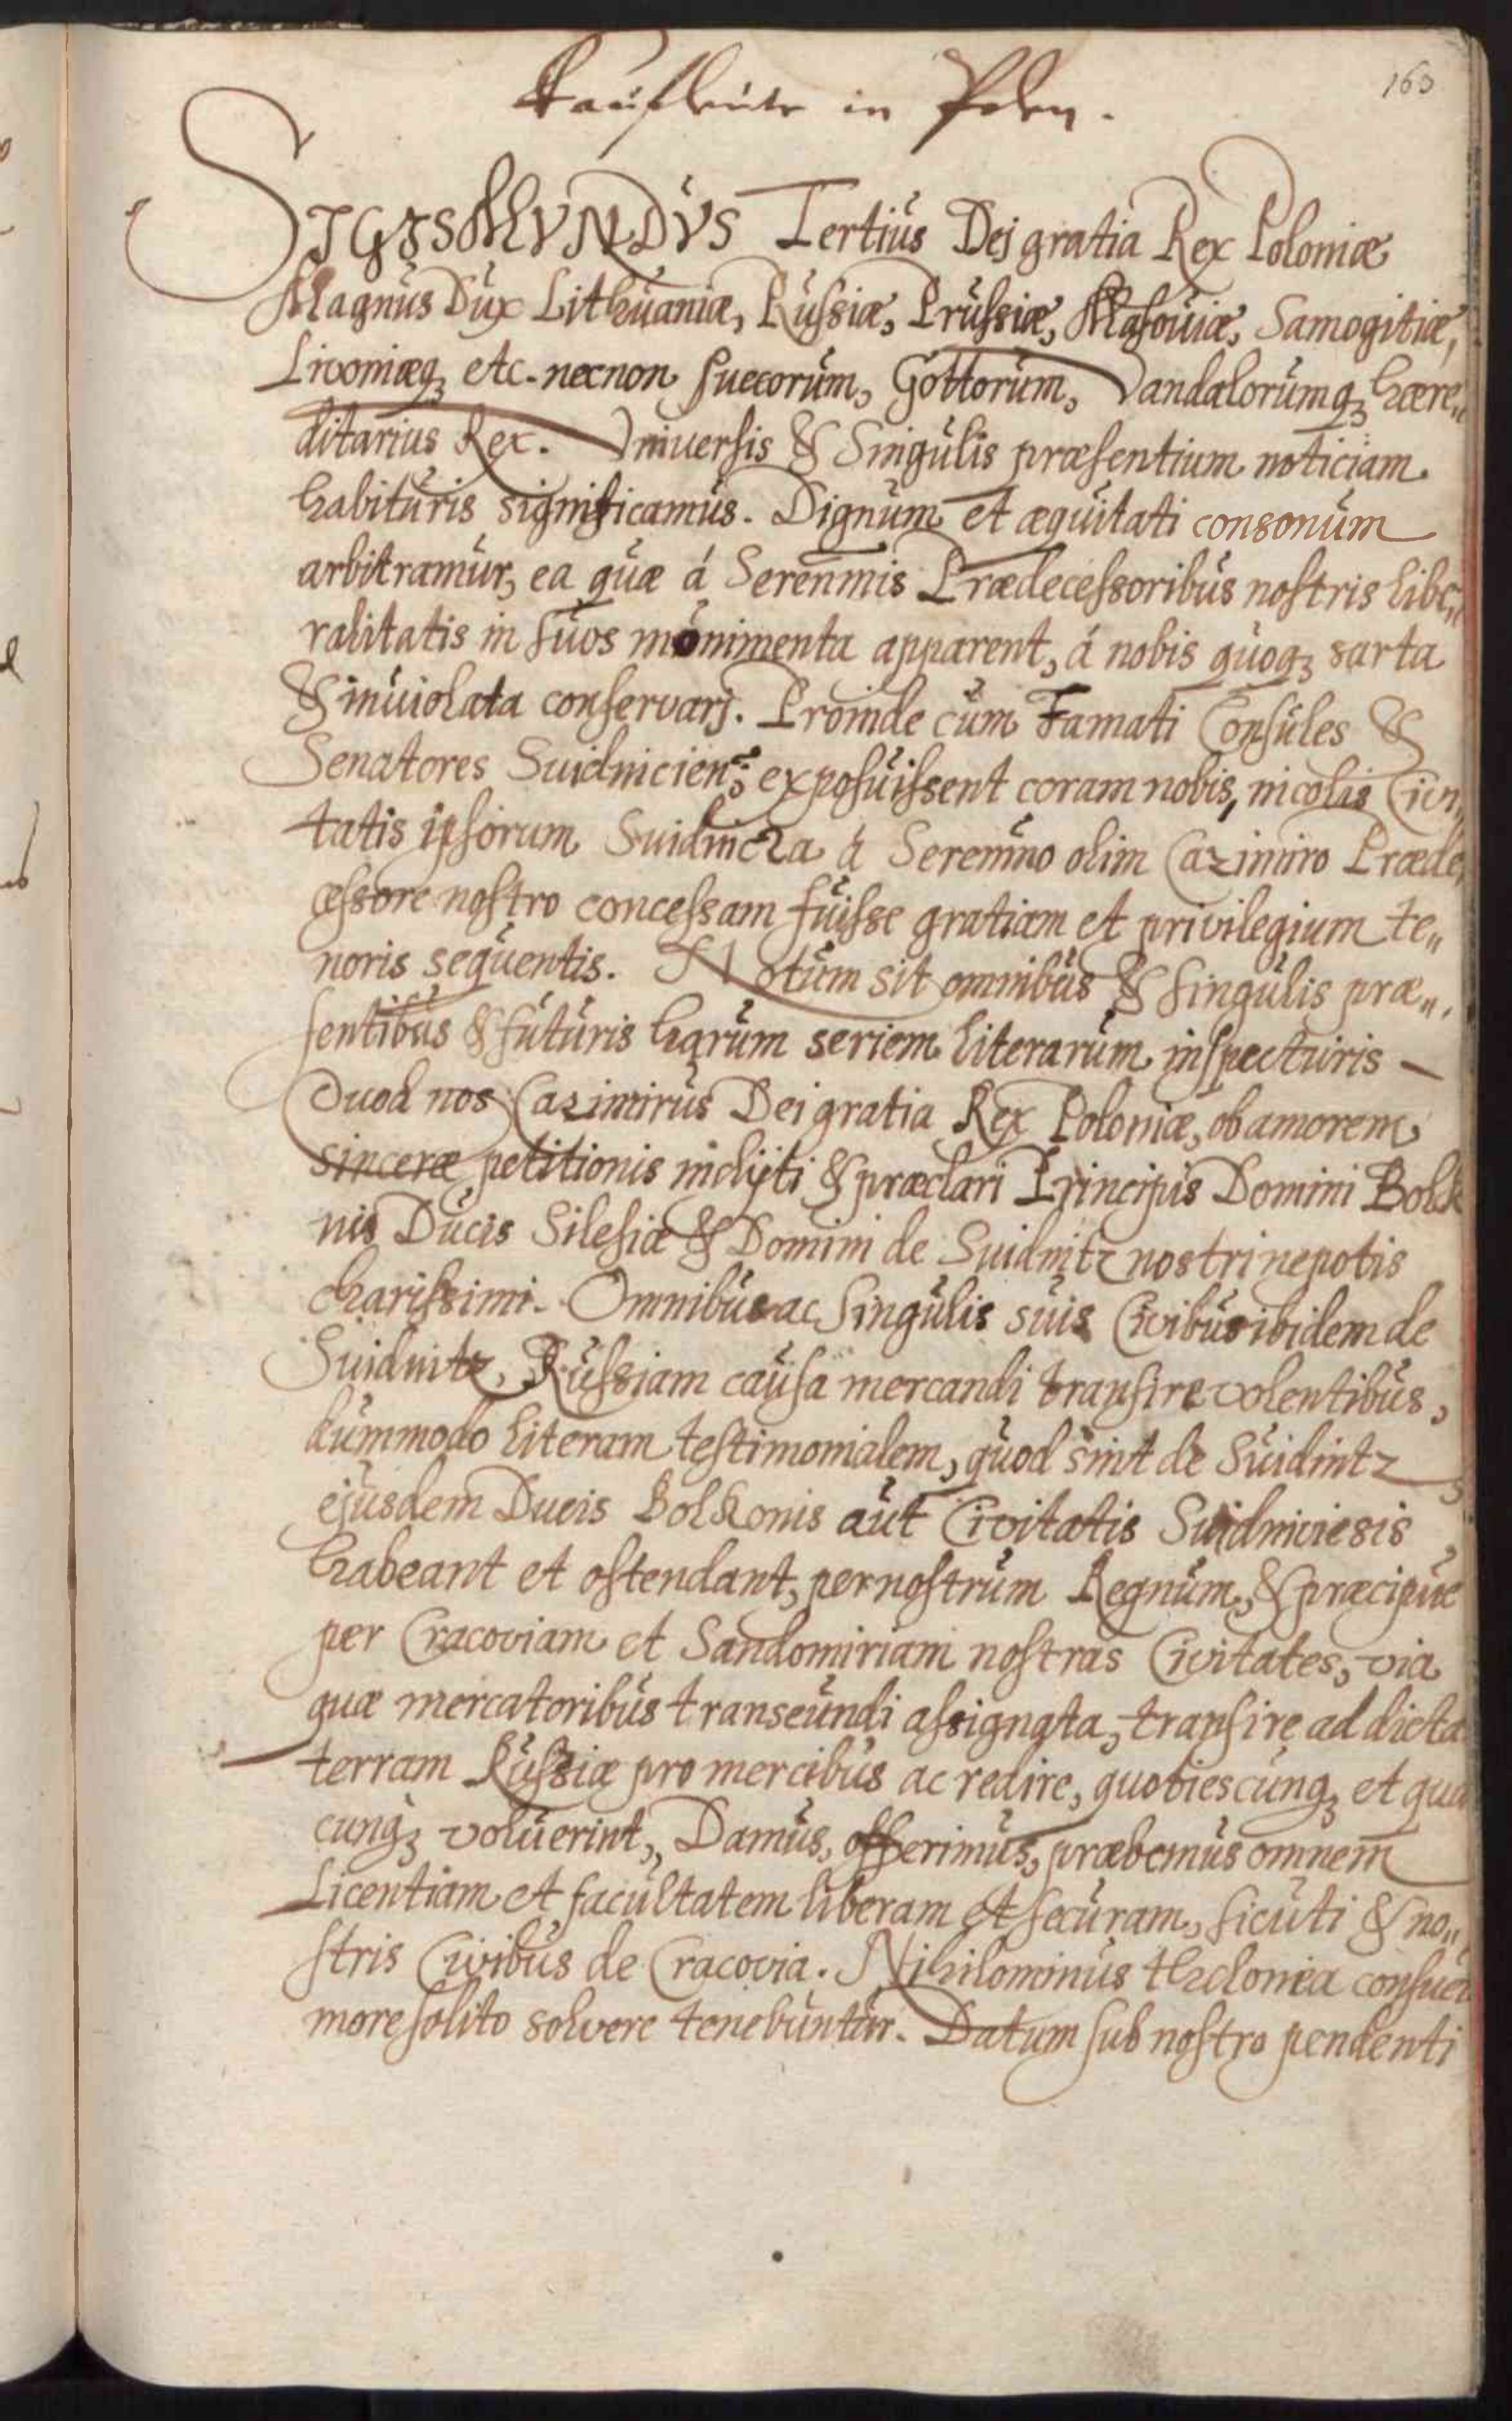 163
Kaufleute in Polen.
SIGISMUNDVS Tertiús Dej gratia Rex Poloniæ
Magnús Dúx Lithúaniæ, Rússiæ, Prússiæ, Masouiæ, Samogitiæ,
Livoniæq₃ etc. necnon Suecorúm, Gottorúm, Vandalorúmq₃ hære„
ditarius Rex. Vniuersis & Singúlis præsentium noticiam
habitúris significamús. Dignúm et æqúitati consonúm
arbitramúr, ea quæ á Seren̄mis Prædecessoribús nostris libe„
ralitatis in súos monimenta apparent, á nobis qúoq₃ sarta
& inúiolata conservarj. Proinde cúm Famati Consúles &
Senatores Suidnicien; exposúissent coram nobis, incolis Civi„
tatis ipsorum Suidnicza á Seren̄mo olim Cazimiro Præde„
cessore nostro concessam fúisse gratiam et privilegium te„
noris seqúentis. Notúm sit omnibús & singúlis præ„
sentibús & fútúris harúm seriem literarúm inspectúris
Quod nos Cazimirús Dei gratia Rex Poloniæ, ob amorem
sinceræ petitionis inclijti & præclari Principis Domini Bolko
nis Dúcis Silesiæ & Domini de Suidnitz nostri nepotis
charissimi. Omnibús ac singúlis súis Civibús ibidem de
Suidnitz, Rússiam caúsa mercandi transire volentibús,
dúmmodo literam testimonialem, qúod sint de Súidnitz
ejúsdem Ducis Bolkonis aút Civitatis Suidniciesis
habeant et ostendant, per nostrúm Regnúm, & præcipúe
per Cracoviam et Sandomiriam nostras Civitates, via
quæ mercatoribús transeúndi assignata, transire ad dicta
terram Rússiæ pro mercibús ac redire, quotiescúnq₃ et qua
cúnq₃ volúerint, Damús, offerimús, præbemús omnem
Licentiam et facúltatem liberam et secúram, sicúti & no„
stris Civibús de Cracovia. Nihilominús thelonea consuet
more solito solvere tenebúntúr. Datum sub nostro pendenti